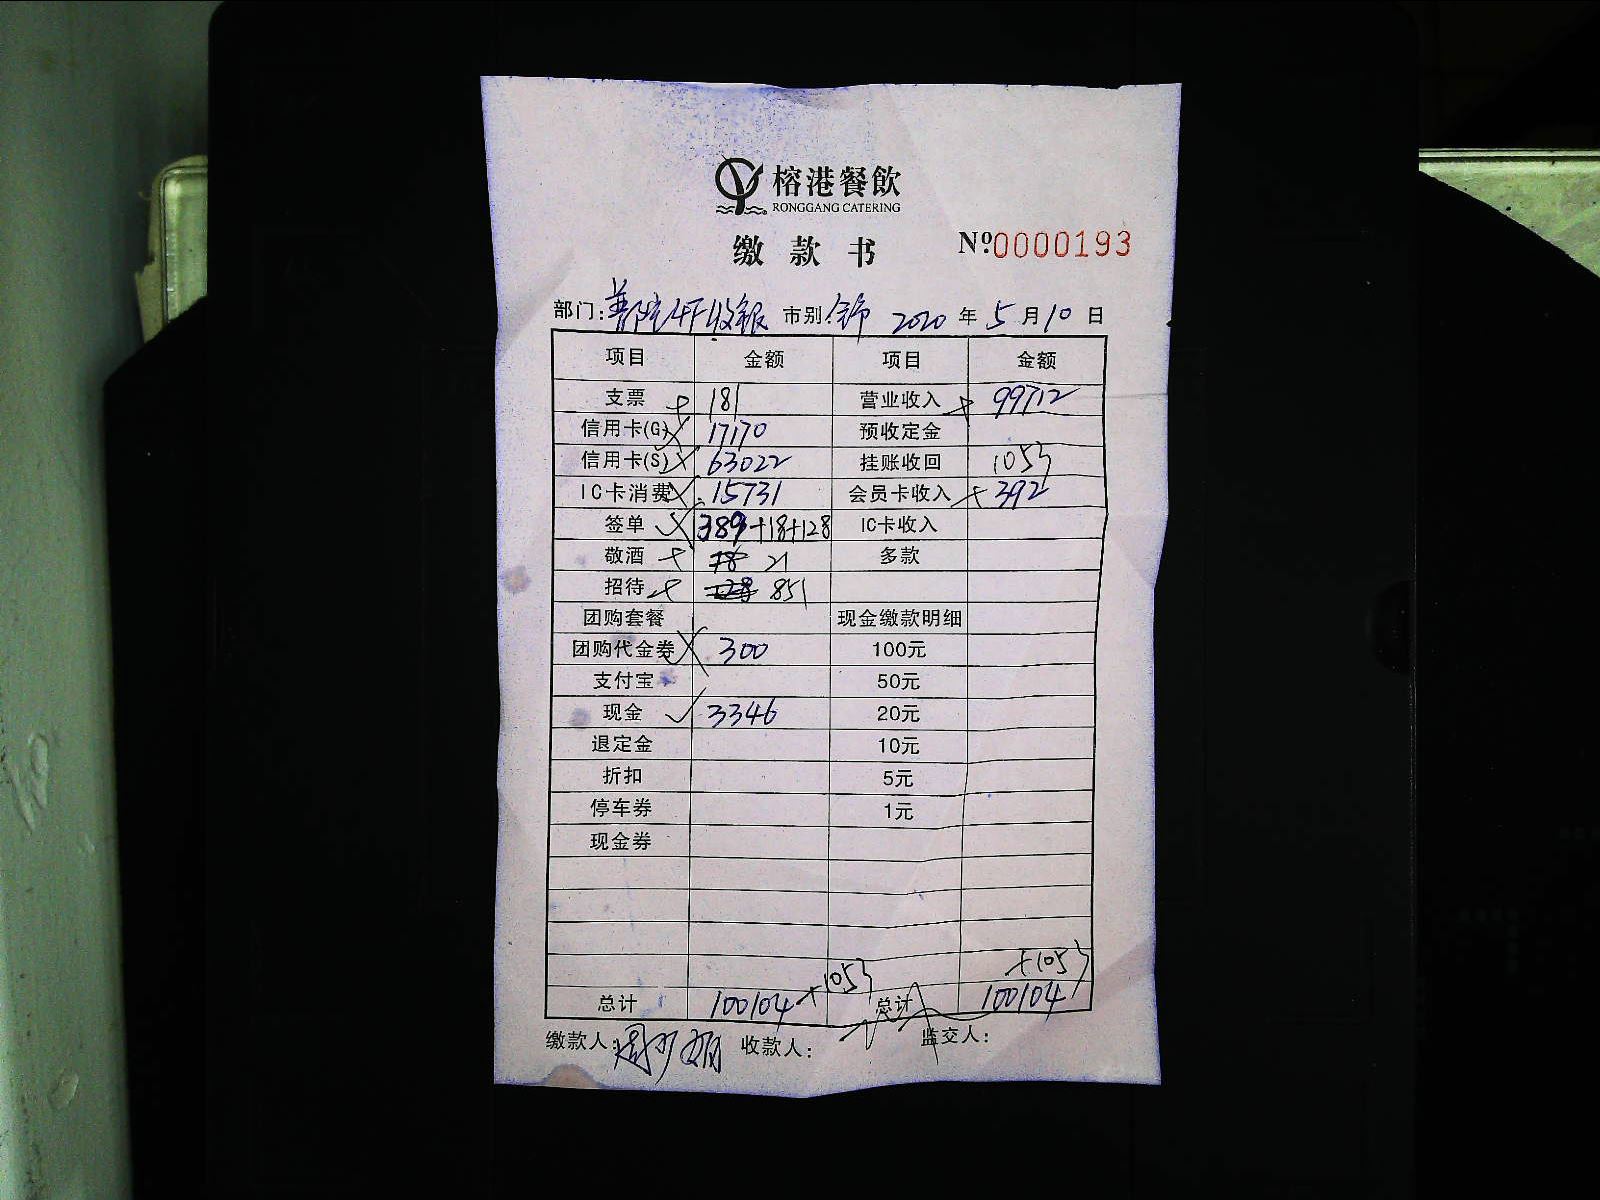 榕港餐飲
RONGGANG CATERING
缴款书 Nº0000193
部门: 收银 市别 2020 年 5 月 10 日
项目 金额 项目 金额
支票 181 营业收入 99712
信用卡(G) 17170 预收定金
信用卡(S) 63022 挂账收回 1053
IC卡消费 15731 会员卡收入 392
签单 389+18+128 IC卡收入
敬酒 21 多款
招待 851
团购套餐 现金缴款明细
团购代金券 300 100元
支付宝 50元
现金 3346 20元
退定金 10元
折扣 5元
停车券 1元
现金券
+1053 +1053
总计 100104 总计 100104
缴款人: 收款人: 监交人: